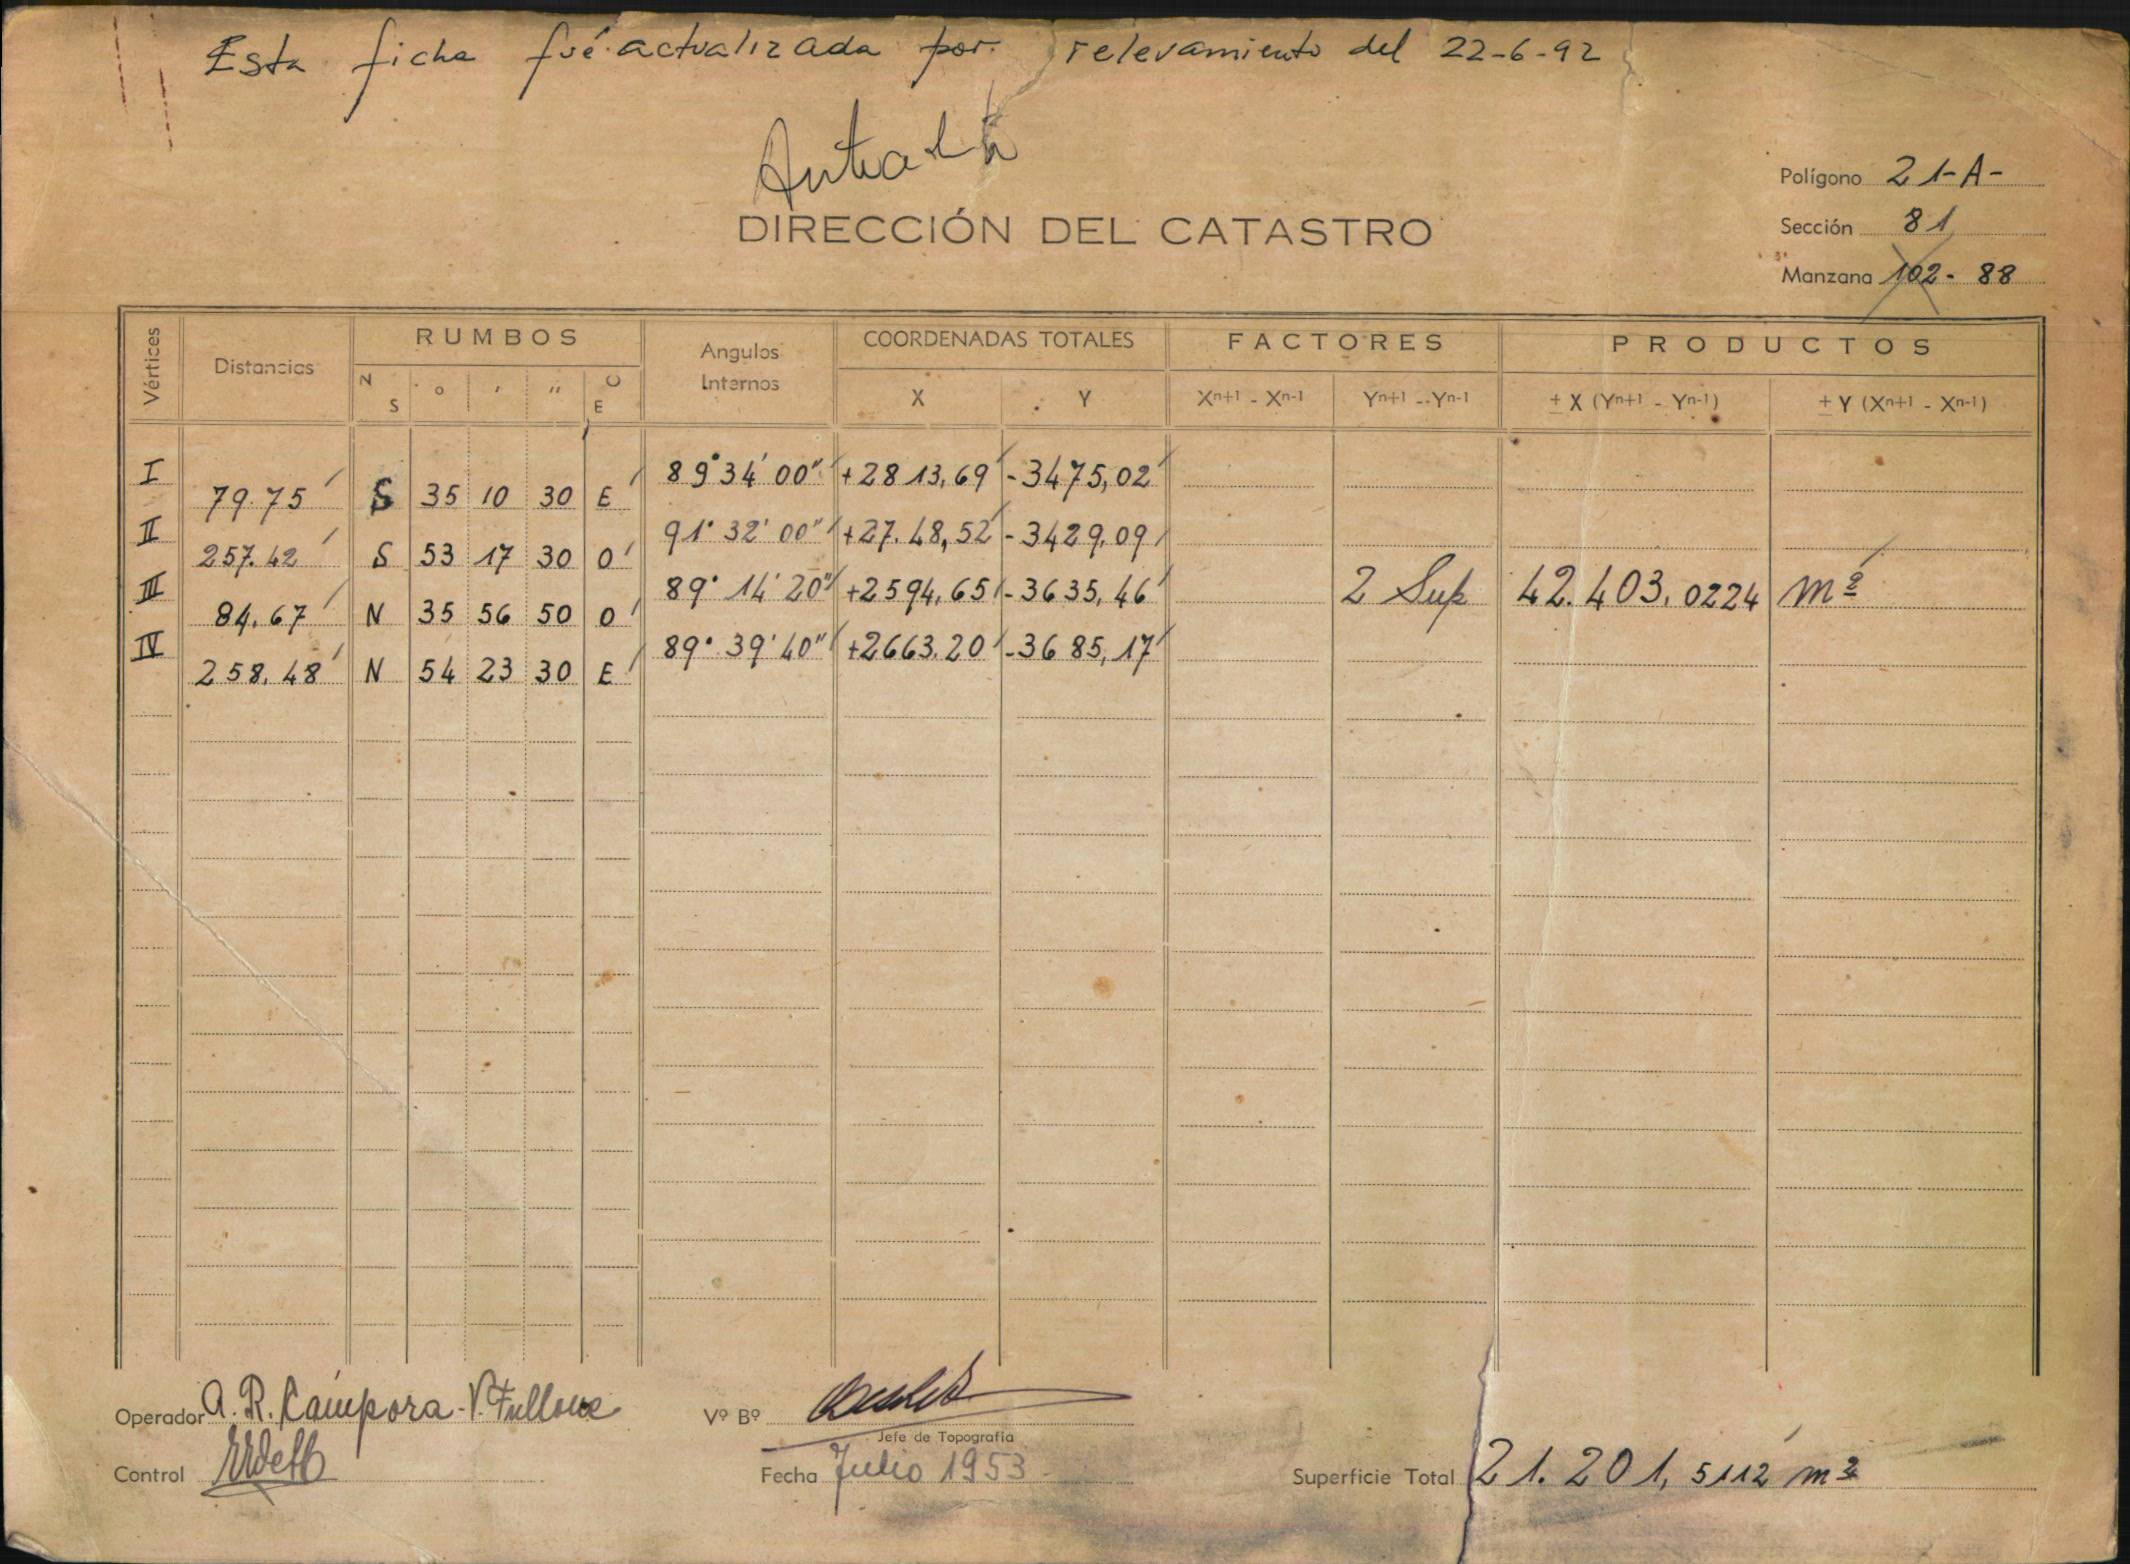 Esta ficha fué actualizada por relevamiento del 22-6-92
DIRECCIÓN DEL CATASTRO
Polígono 21-A-
Sección 81
Manzana 102- 88
Vértices Distancias RUMBOS Angulos Internos COORDENADAS TOTALES FACTORES PRODUCTOS
N S ° ' " O E X Y Xn+1 - Xn-1 Yn+1 - Yn-1 ± X (Yn+1 - Yn-1) ± Y (Xn+1 - Xn-1)
I 89°34'00" +2813,69 -3475,02
79.75 S 35 10 30 E
II 91°32'00" +27.48,52 -3429,09
257.42 S 53 17 30 O
III 89°14'20" +2594,65 -3635,46 2 Sup 42.403,0224 m²
84.67 N 35 56 50 O
IV 89°39'40" +2663.20 -3685,17
258.48 N 54 23 30 E
Operador A. R. Cámpora - V.
Vº Bº
Jefe de Topografía
Control
Fecha Julio 1953
Superficie Total 21.201,5112 m²